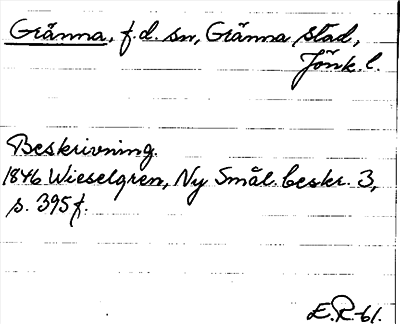 Gränna, f.d. sn, Gränna stad,
Jönk. l.
Beskrivning.
1846 Wieselgren, Ny Smål. beskr. 3,
s. 395 f.
E.R-61.